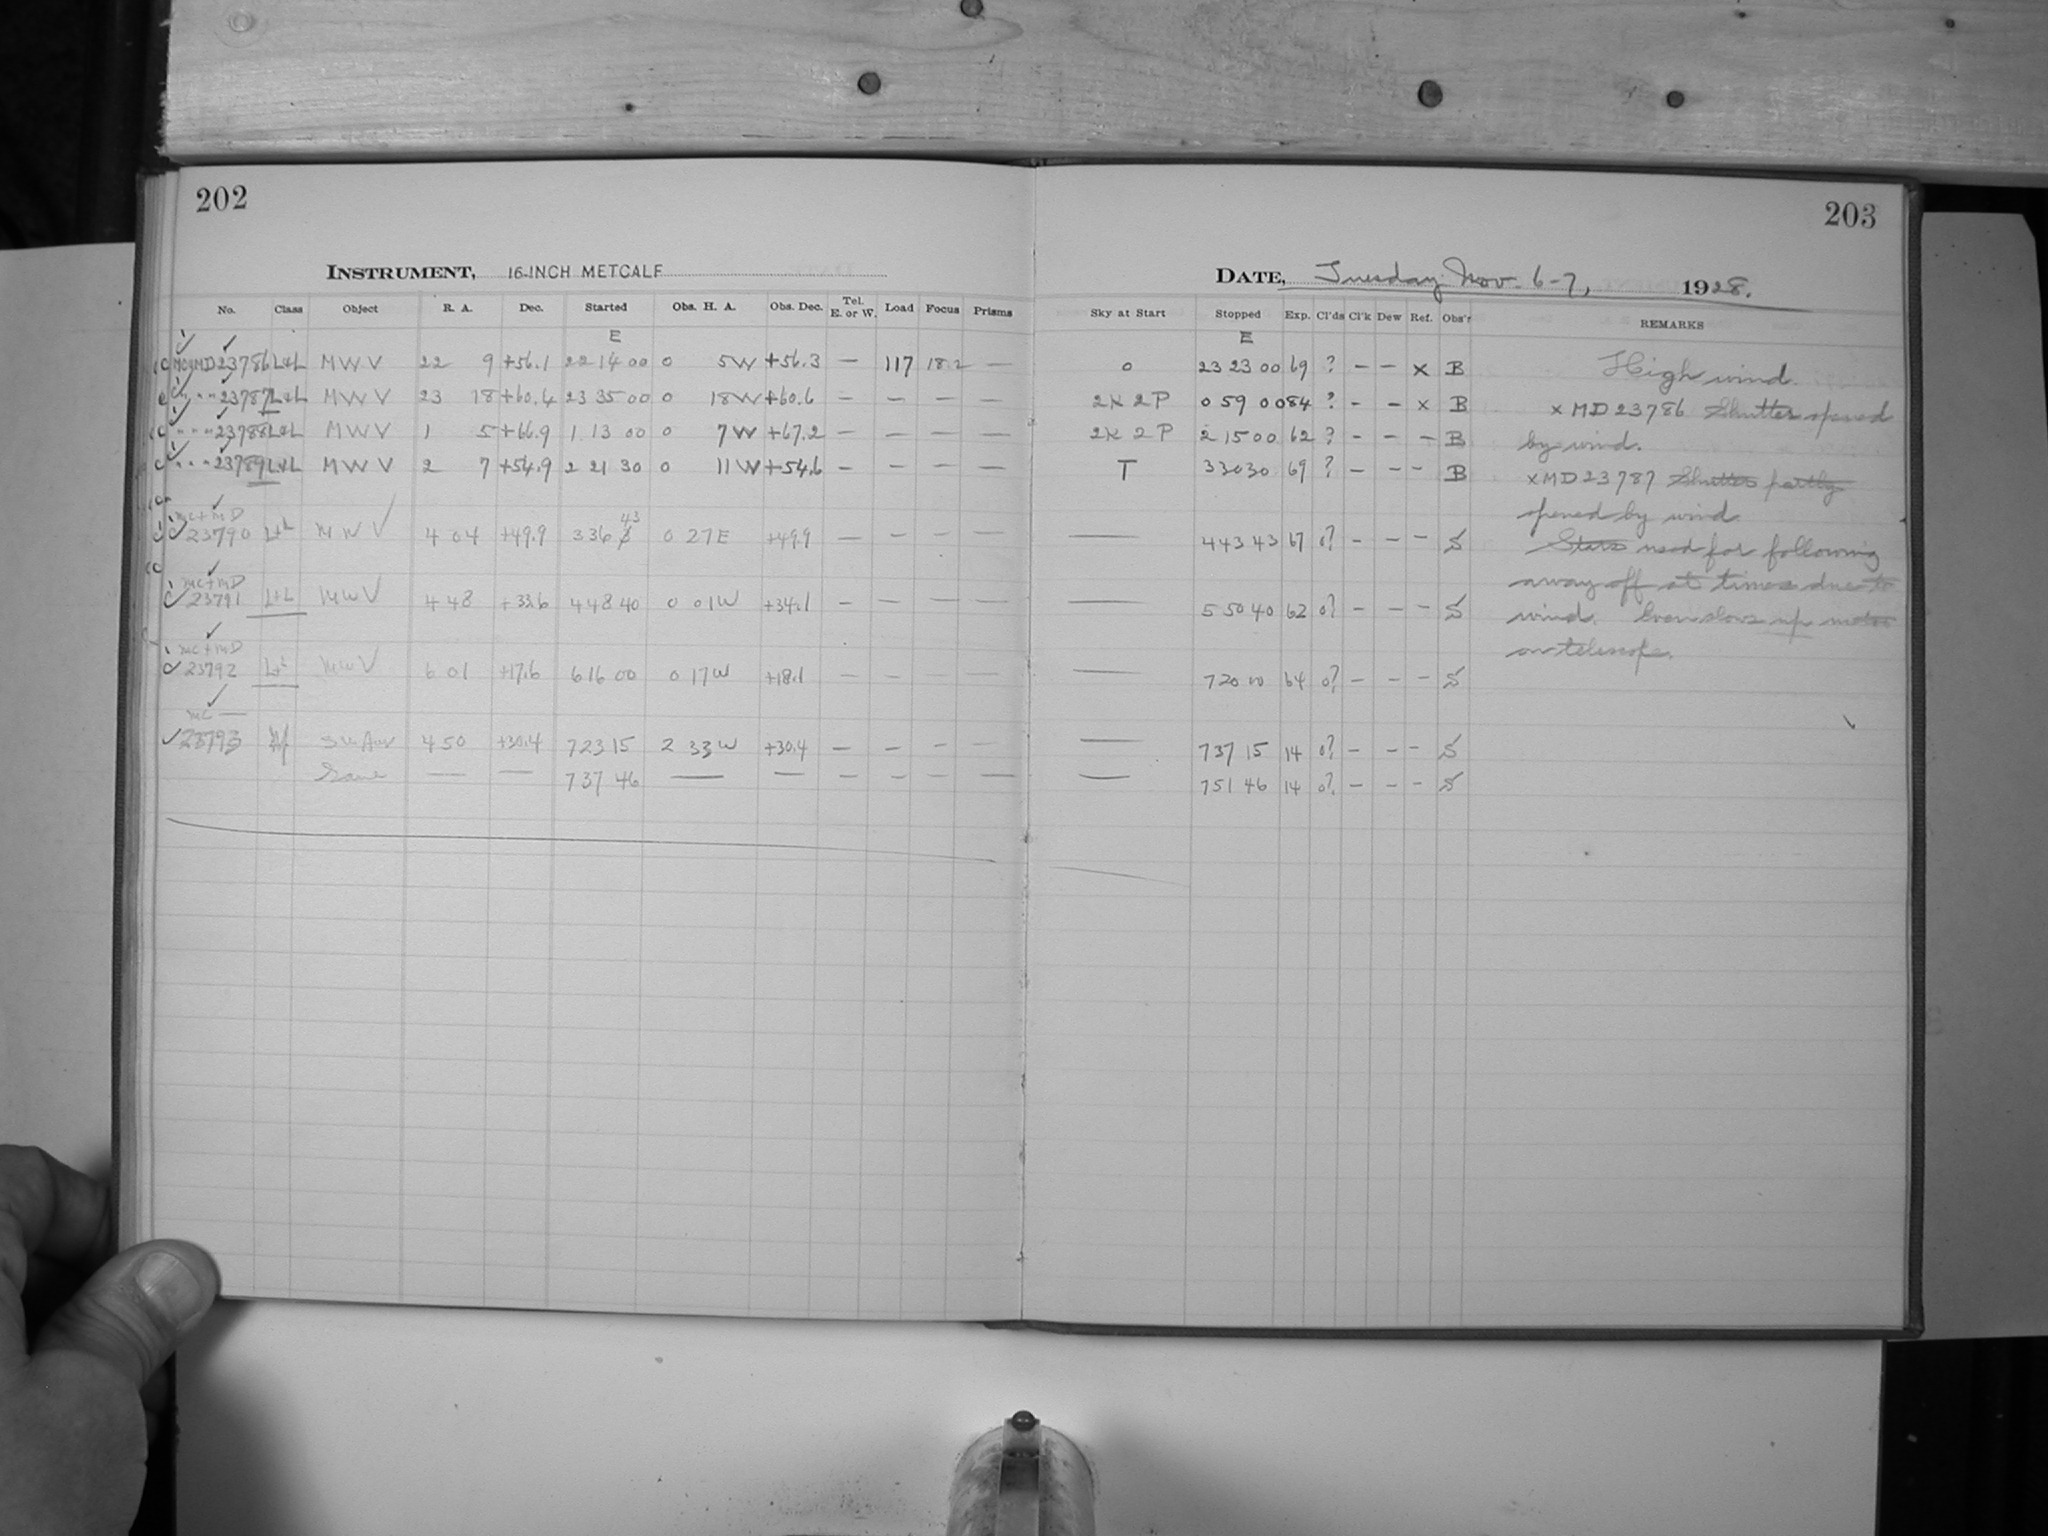 202
203
INSTRUMENT, 16-INCH METCALF
DATE, Tuesday Nov. 6-7, 1928.
No. Class Object R. A. Dec. Started Obs. H. A. Obs. Dec. Tel. E. or W. Load Focus Prisms Sky at Start Stopped Exp. Cl'ds Cl'k Dew Ref. Obs'r REMARKS
E E
MC+MD 23786 L+L M W V 22 9 +56.1 22 14 00 0 5W +56.3 — 117 18.2 — 0 23 23 00 69 ? – – x B High wind.
" " " 23787 L+L M W V 23 18 +60.4 23 35 00 0 18W +60.6 — — — — 2K 2P 0 59 00 84 ? – – x B x MD 23786 Shutter opened
" " " 23788 L+L M W V 1 5 +66.9 1 13 00 0 7W +67.2 — — — — 2K 2P 2 15 00 62 ? – – – B by wind.
" " " 23789 L+L M W V 2 7 +54.9 2 21 30 0 11W +54.6 — — — — T 3 30 30 69 ? – – – B x MD 23787 Shutter partly
opened by wind.
MC+MD
23790 L+L M W V 4 04 +49.9 3 36 43 0 27E +49.9 — — — — — 4 43 43 67 0? – – – S Stars used for following
away off at times due to
MC+MD
23791 L+L M W V 4 48 +33.6 4 48 40 0 01W +34.1 — — — — — 5 50 40 62 0? – – – S wind. Even slows up motor
on telescope.
MC+MD
23792 L+L M W V 6 01 +17.6 6 16 00 0 17W +18.1 — — — — — 7 20 00 64 0? – – – S
MC —
23793 SU Aur 4 50 +30.4 7 23 15 2 33W +30.4 — — — — — 7 37 15 14 0? – – – S
Same — — 7 37 46 — — — — — — — 7 51 46 14 0? – – – S